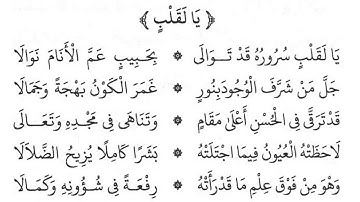 ﴿ يَا لَقَلْبٍ ﴾
يَا لَقَلْبٍ سُرُورُهُ قَدْ تَوَالَى ۞ بِحَبِيبٍ عَمَّ الْأَنَامَ نَوَالَا
جَلَّ مَنْ شَرَّفَ الْوُجُودَ بِنُورٍ ۞ غَمَرَ الْكَوْنُ بَهْجَةً وَجَمَالَا
قَدْ تَرَقَّى فِي الْحُسْنِ أَعْلَى مَقَامٍ ۞ وَتَنَاهَى فِي مَجْدِهِ وَتَعَالَى
لَاحَظَتْهُ الْعُيُونُ فِيمَا اجْتَلَتْهُ ۞ بَشَرًا كَامِلًا يُزِيحُ الضَّلَالَا
وَهْوَ مِنْ فَوْقِ عِلْمِ مَا قَدْ رَأَتْهُ ۞ رِفْعَةً فِي شُؤُونِهِ وَكَمَالَا